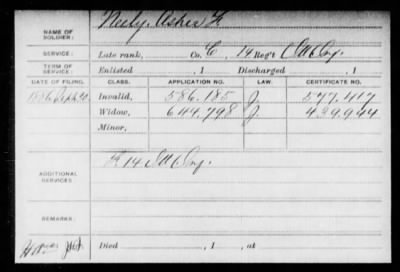 NAME OF SOLDIER: Neely, Asher F.
SERVICE: Late rank, Co. C, 14 Reg't
TERM OF SERVICE: Enlisted , 1 Discharged , 1
DATE OF FILING. CLASS. APPLICATION NO. LAW. CERTIFICATE NO.
Invalid, 586.185 J. 577.417
Widow, 644.798 J. 439.944
Minor,
ADDITIONAL SERVICES: 14
REMARKS:
Died , 1 , at